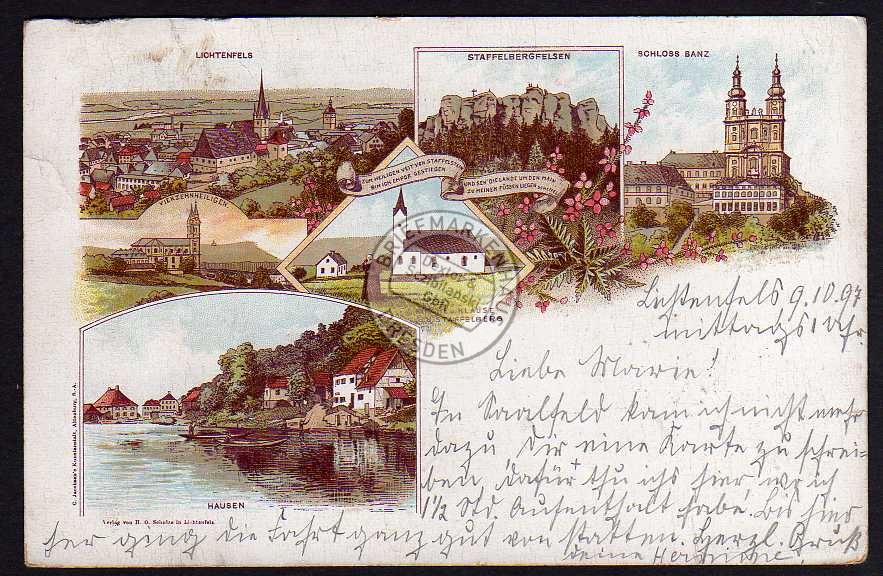 LICHTENFELS
STAFFELBERGFELSEN
SCHLOSS BANZ
ZUM HEILIGEN VEIT VON STAFFELSTEIN
BIN ICH EMPOR GESTIEGEN
UND SEH' DIE LANDE UM DEN MAIN
ZU MEINEN FÜSSEN LIEGEN
VIERZEHNHEILIGEN
KLAUSE
STAFFELBERG
BRIEFMARKEN
DRESDEN
HAUSEN
Verlag von H. O. Schulze in Lichtenfels
Lichtenfels 9.10.97
mittags 1 Uhr.
Liebe Marie!
In Saalfeld kam ich nicht mehr
dazu Dir eine Karte zu schrei-
ben, dafür thu ich's hier, wo ich
1½ Std. Aufenthalt habe. Bis hier
her ging die Fahrt ganz gut von statten. Herzl. Gruß
deine Hermine